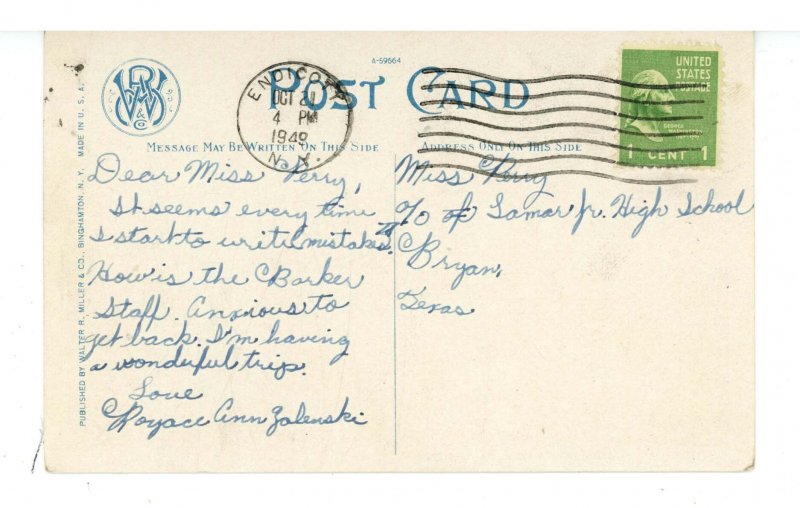 A-59664
POST CARD
ENDICOTT
OCT 21
4 PM
1949
N.Y.
UNITED
STATES
POSTAGE
GEORGE
WASHINGTON
1 CENT 1
WRM
& CO
MESSAGE MAY BE WRITTEN ON THIS SIDE
ADDRESS ONLY ON THIS SIDE
PUBLISHED BY WALTER R. MILLER & CO., BINGHAMTON, N. Y. MADE IN U. S. A.
Dear Miss Perry,
It seems every time
I start to write mistakes.
How is the Barker
Staff. Anxious to
get back. I'm having
a wonderful trip.
Love
Royace Ann Zalenski
Miss Perry
c/o of Lamar Jr. High School
Bryan,
Texas